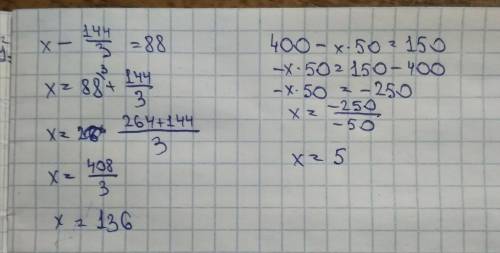 x - 144/3 = 88
x = 88³ + 144/3
x = (264+144)/3
x = 408/3
x = 136
400 - x·50 = 150
-x·50 = 150 - 400
-x·50 = -250
x = -250/-50
x = 5